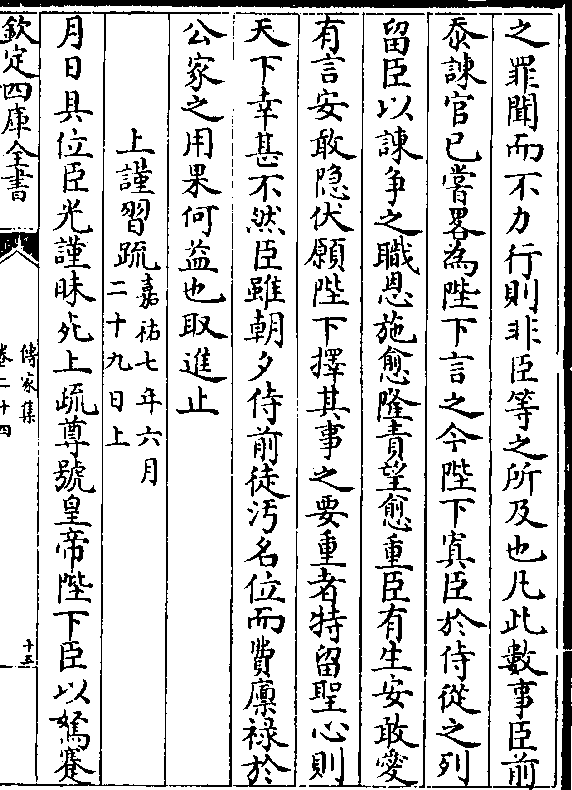 之罪聞而不力行則非臣等之所及也凡此數事臣前
忝諫官已嘗畧為陛下言之今陛下寘臣於侍從之列
留臣以諫爭之職恩施愈隆責望愈重臣有生安敢愛
有言安敢隐伏願陛下擇其事之要重者特留聖心則
天下幸甚不然臣雖朝夕侍前徒汚名位而費廪禄於
公家之用果何益也取進止
上謹習疏嘉祐七年六月
二十九日上
月日具位臣光謹昧死上疏尊號皇帝陛下臣以駑蹇
欽定四庫全書
傳家集
卷二十四
十五